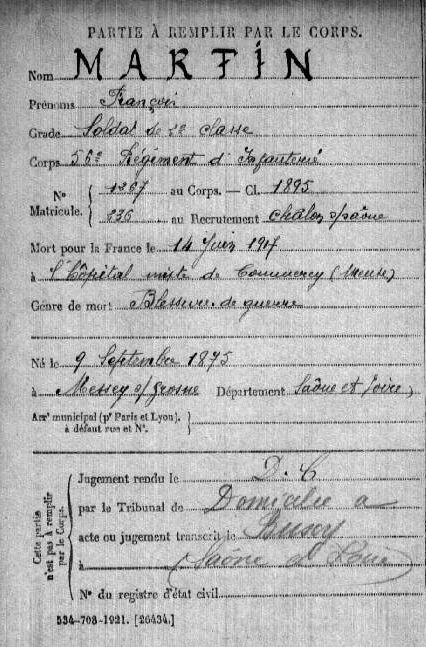 PARTIE À REMPLIR PAR LE CORPS.
Nom MARTIN
Prénoms François
Grade Soldat de 2e classe
Corps 56e Régiment d'Infanterie
N° Matricule. { 1267 au Corps. — Cl. 1895
836 au Recrutement Chalon s/saône
Mort pour la France le 14 Juin 1917
à l'hôpital mixte de Commercy (Meuse)
Genre de mort Blessure de guerre
Né le 9 Septembre 1875
à Messey s/Grosne Département Saône et Loire
Arrt municipal (pr Paris et Lyon), à défaut rue et N°. }
Cette partie n'est pas à remplir par le Corps.
Jugement rendu le D. C
par le Tribunal de Domicilié à
acte ou jugement transcrit le
à Saône et Loire
N° du registre d'état civil
534-708-1921. [26434.]